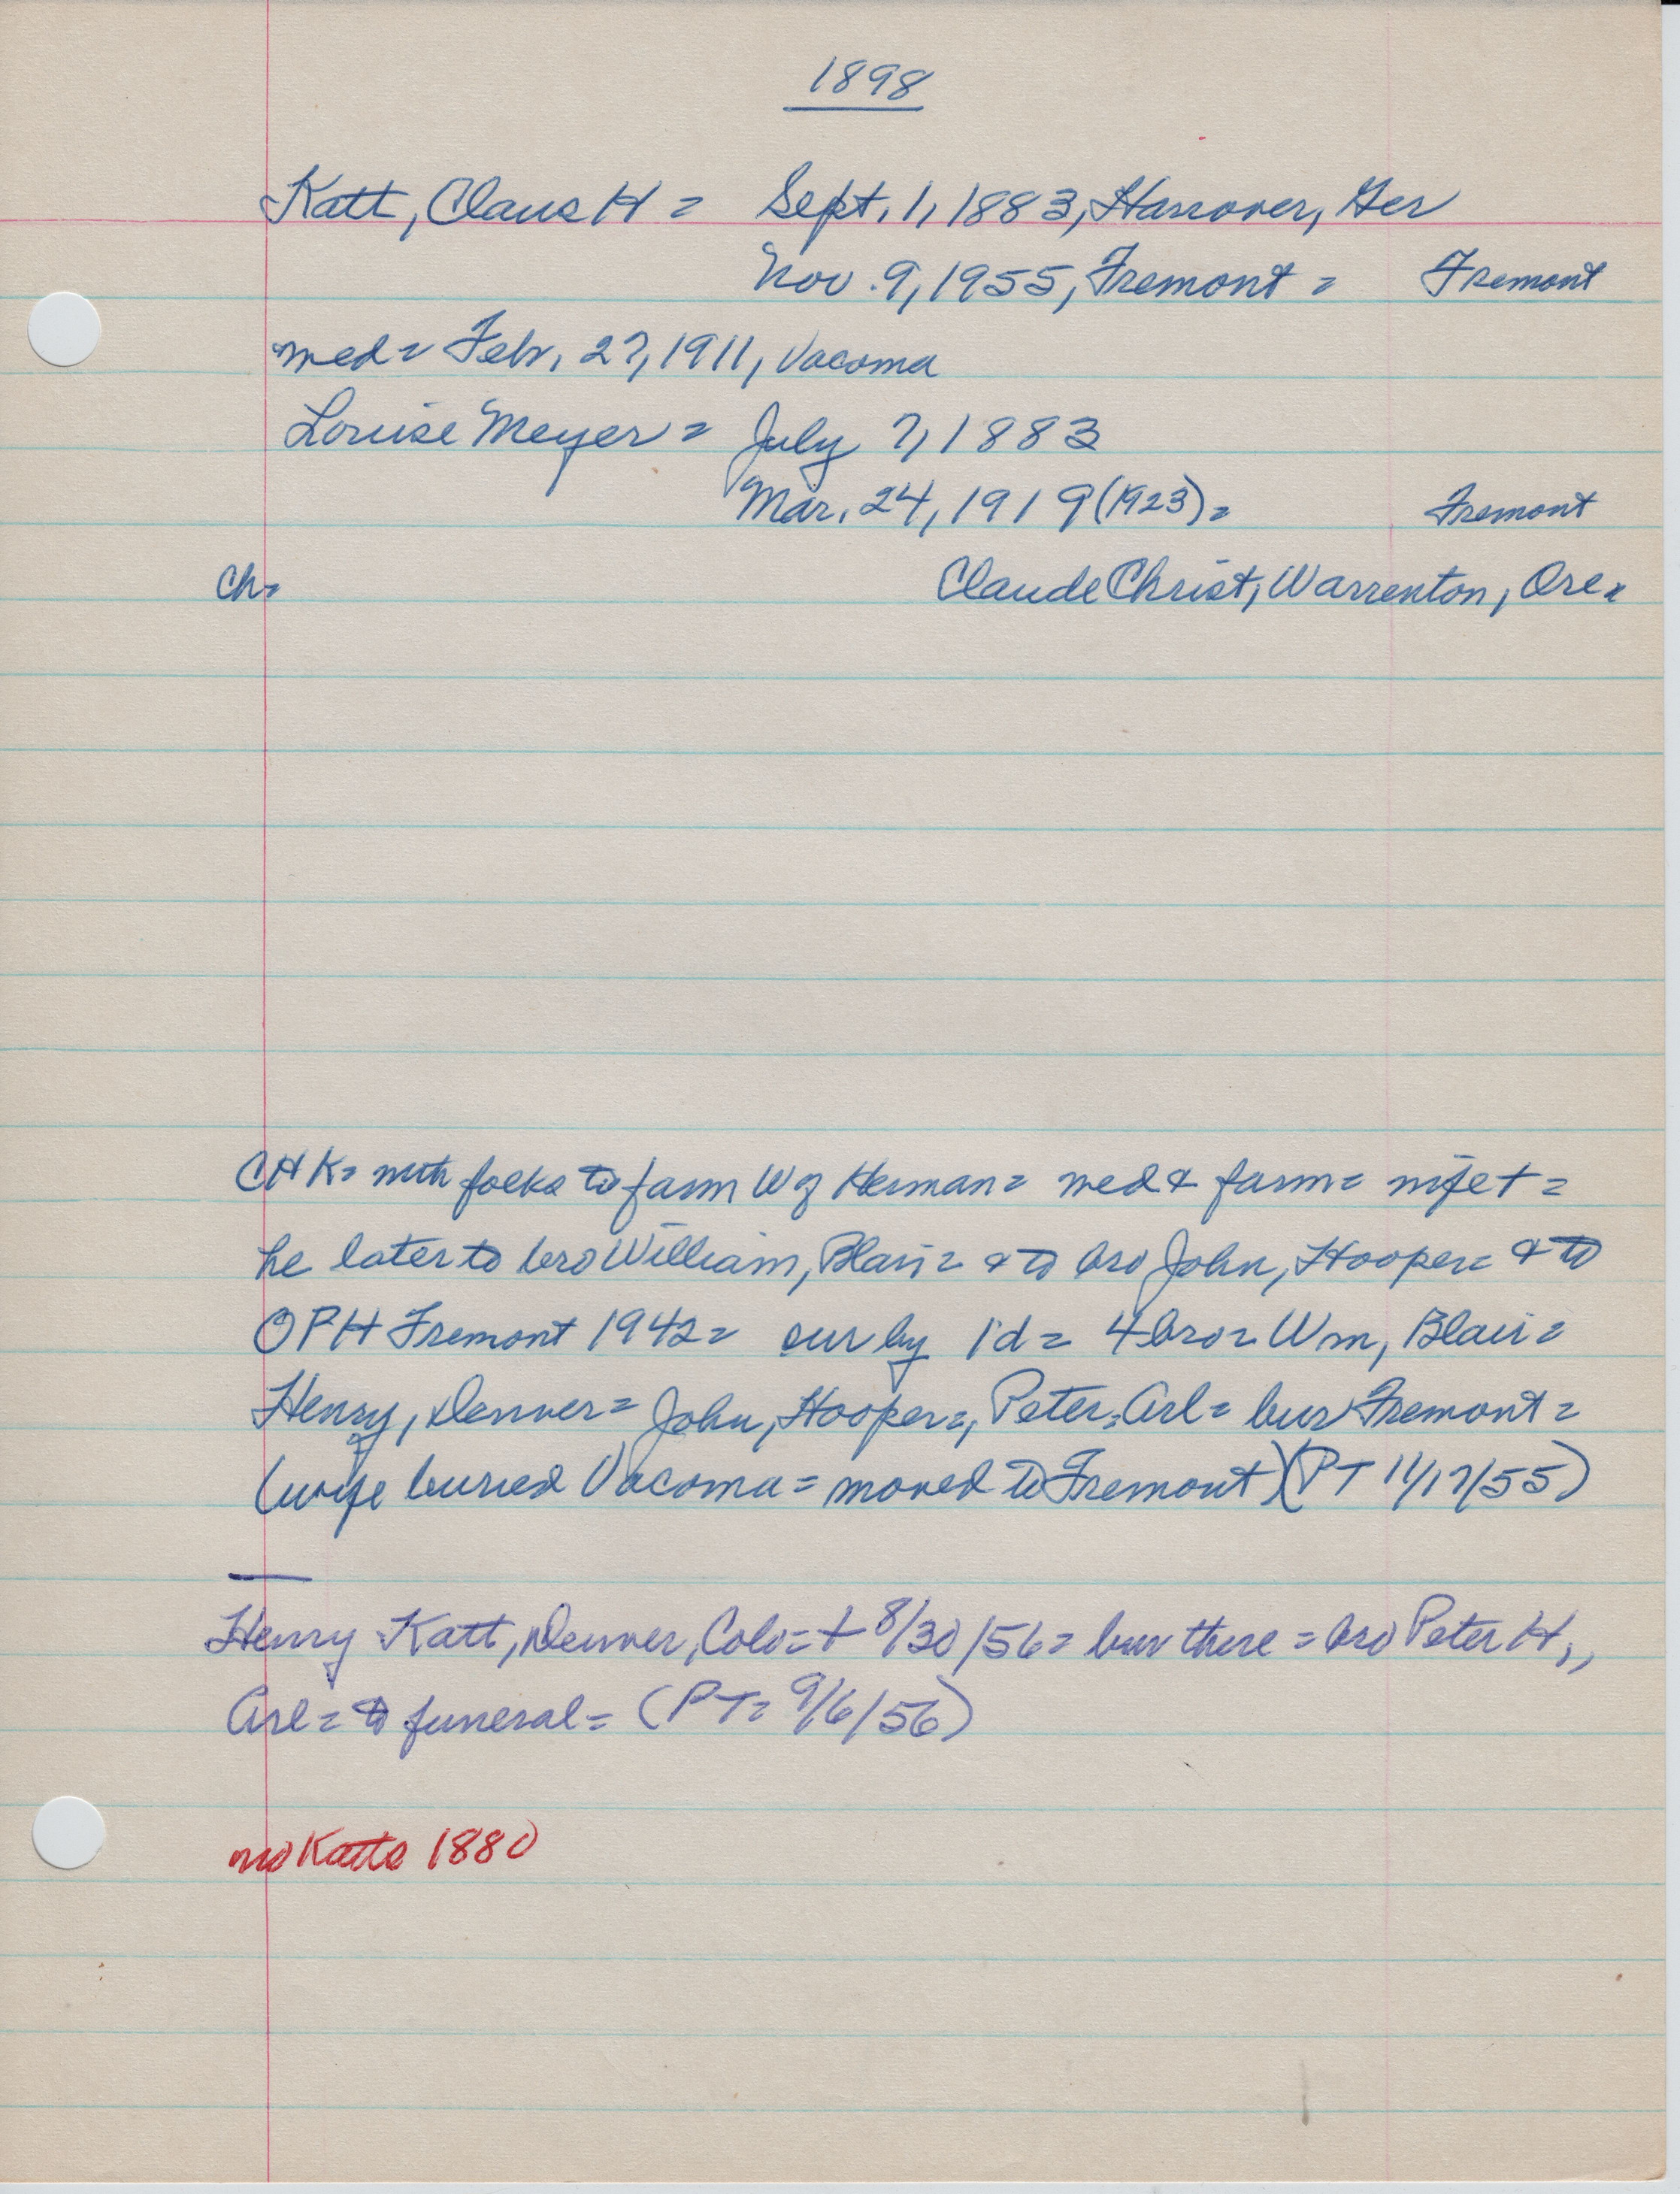 1898
Katt, Claus H = Sept. 1, 1883, Hanover, Ger
Nov. 9, 1955, Fremont = Fremont
med = Febr, 27, 1911, Vacoma
Louise Meyer = July 7, 1883
Mar. 24, 1919 (1923) = Fremont
Ch=
Claude Christ, Warrenton, Ore=
CHK= with folks to farm W of Herman = med & farm = wife + =
he later to bro William, Blair = & to bro John, Hooper = & to
OPH Fremont 1942 = sur by 1 d = 4 bro = Wm, Blair =
Henry, Denver = John, Hooper =, Peter, Arl = bur Fremont =
(wife buried Vacoma = moved to Fremont) (PT 11/17/55)
Henry Katt, Denver, Colo = + 8/30/56 = bur there = bro Peter H.,
Arl = to funeral = (PT = 9/6/56)
no Katts 1880